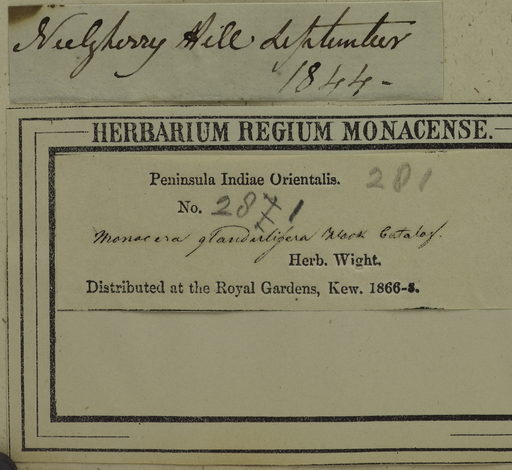 Neelgherry Hill September
1844-
HERBARIUM REGIUM MONACENSE.
Peninsula Indiae Orientalis. 281
No. 2871
Monocera glandulifera Hook Catalog.
Herb. Wight.
Distributed at the Royal Gardens, Kew. 1866-8.